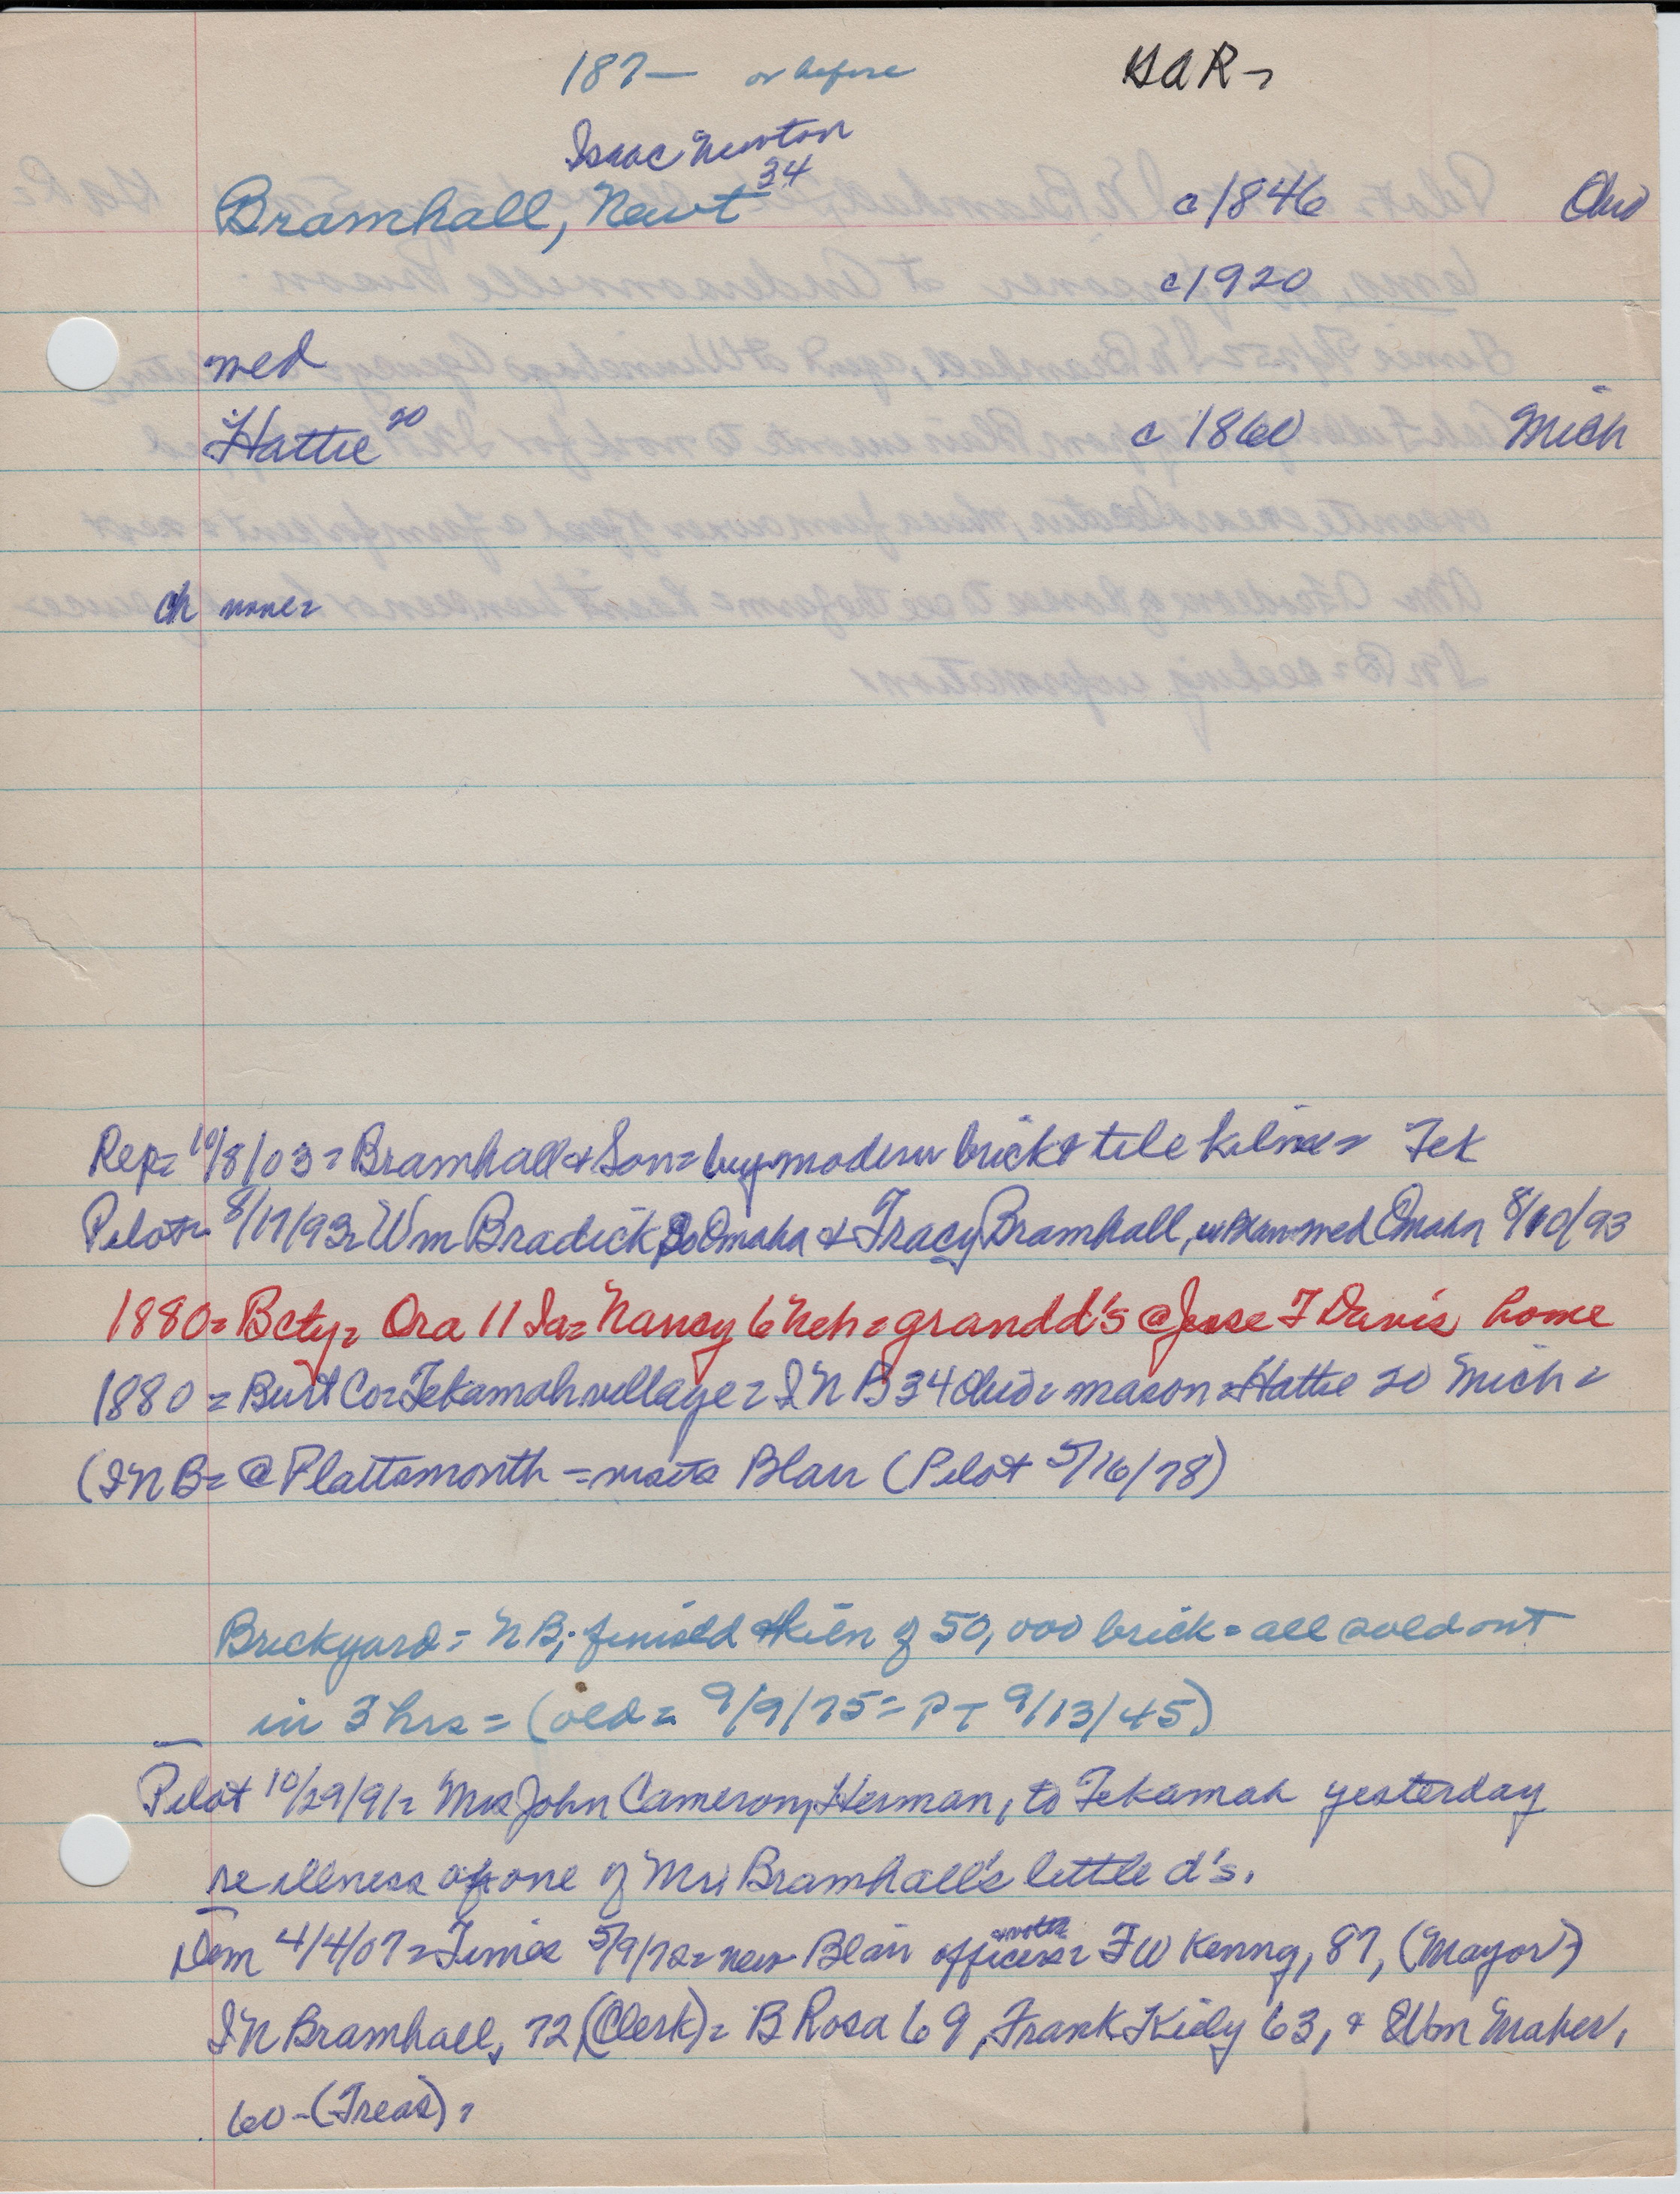 187— or before
GAR=
Isaac Newton
Bramhall, Newt 34 c 1846 Ohio
c 1920
med
Hattie 20 c 1860 Mich
ch none=
Rep= 10/8/03= Bramhall & Son= buy modern brick & tile kiln= Tek
Pilot= 8/17/93= Wm Bradick So Omaha & Tracy Bramhall, med Omaha 8/10/93
1880= Bcty= Ora 11 Ia= Nancy 6 Neb= grandd's @ Jesse T Davis home
1880= Burt Co= Tekamah village= I N B 34 Ohio= mason= Hattie 20 Mich=
(I N B= @ Plattsmouth = visits Blair (Pilot 5/16/78)
Brickyard= N B; kiln of 50,000 brick= all sold out
in 3 hrs= (old= 9/9/75= PT 9/13/45)
Pilot 10/29/91= Mrs John Cameron, Herman, to Tekamah yesterday
re illness of one of Mrs Bramhall's little d's.
Dem 4/4/07= Times 5/9/72= new Blair officers= F W Kenny, 87, (Mayor)
I N Bramhall, 72, (Clerk)= B Rosa 69, Frank Kidy 63, & Wm Maher,
60- (Treas)=